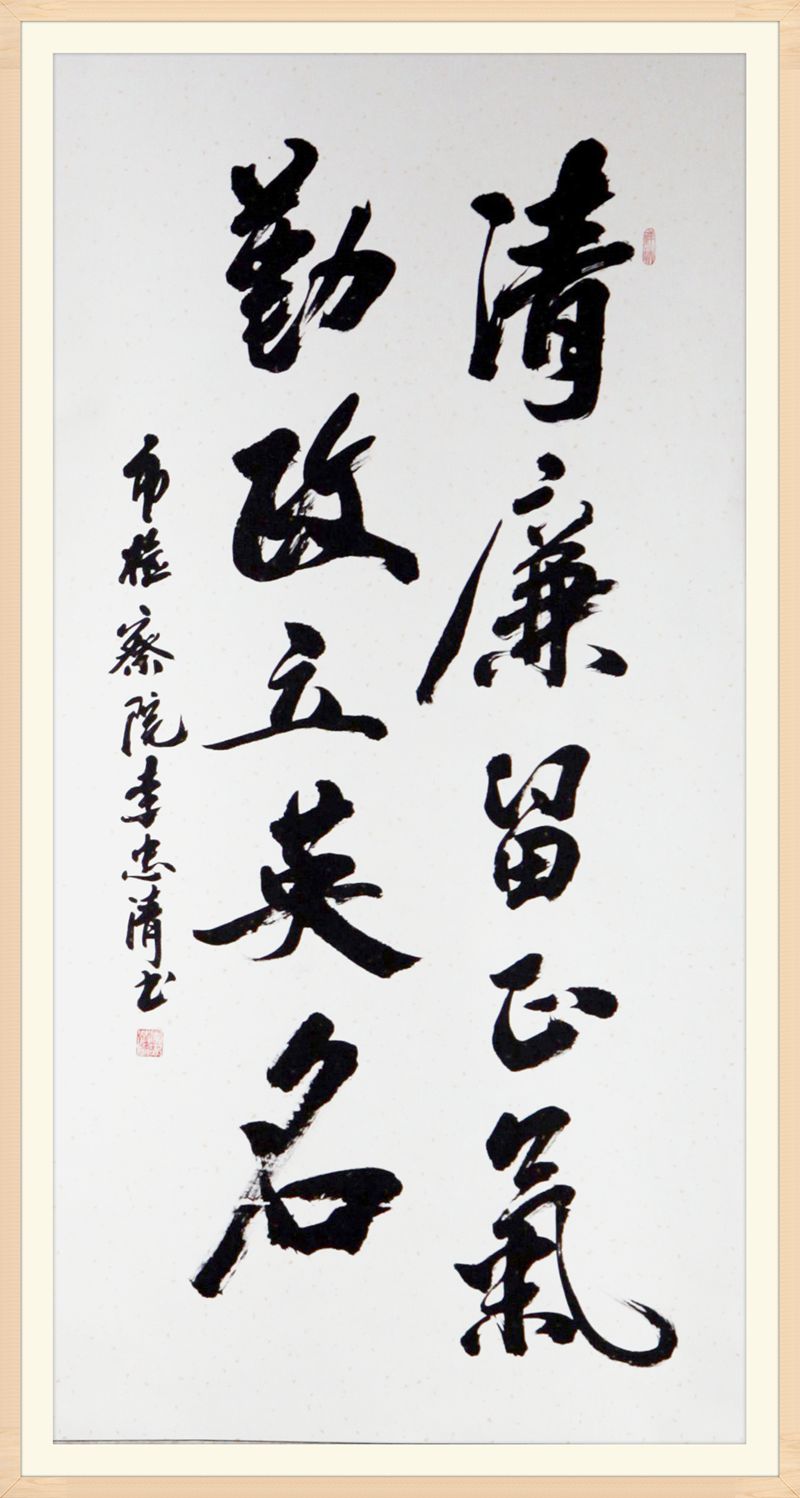 清廉留正氣
勤政立英名
市检察院李忠清书